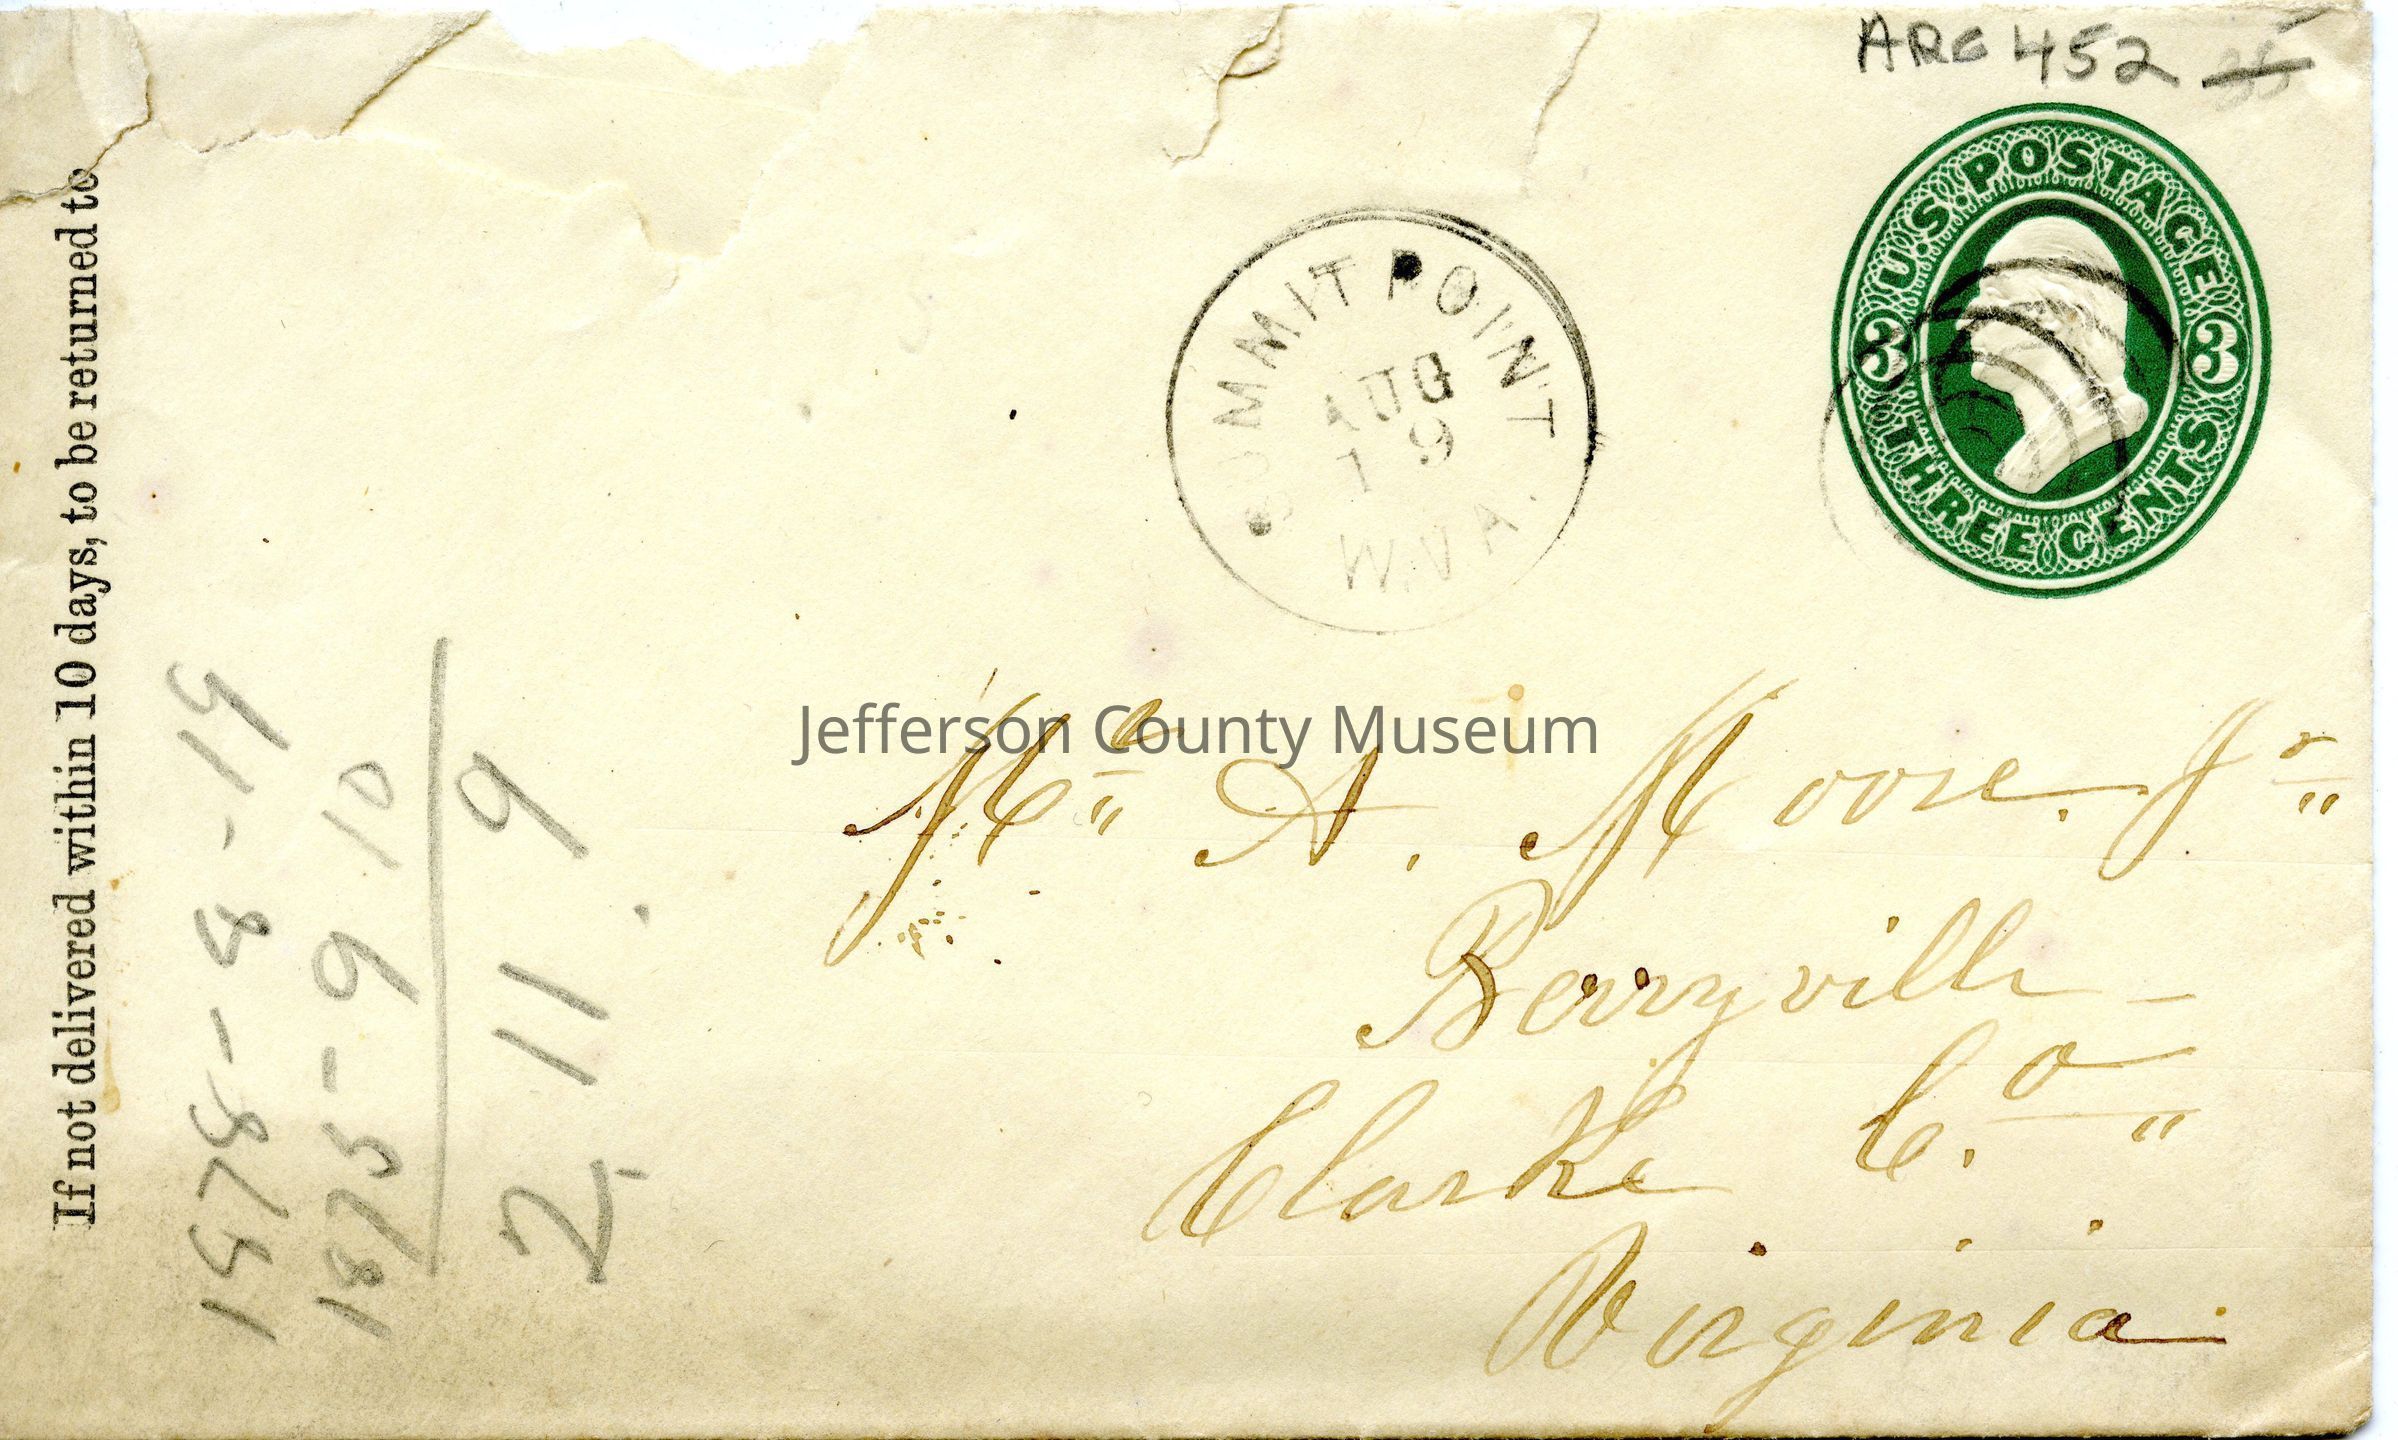 ARC 452
U.S. POSTAGE
3 3
THREE CENTS
SUMMIT POINT
AUG
19
W.VA.
If not delivered within 10 days, to be returned to
1878-8-19
1875-9 10
2 11 9
Jefferson County Museum
Mr A. Moore. Jr
Berryville -
Clarke Co
Virginia.